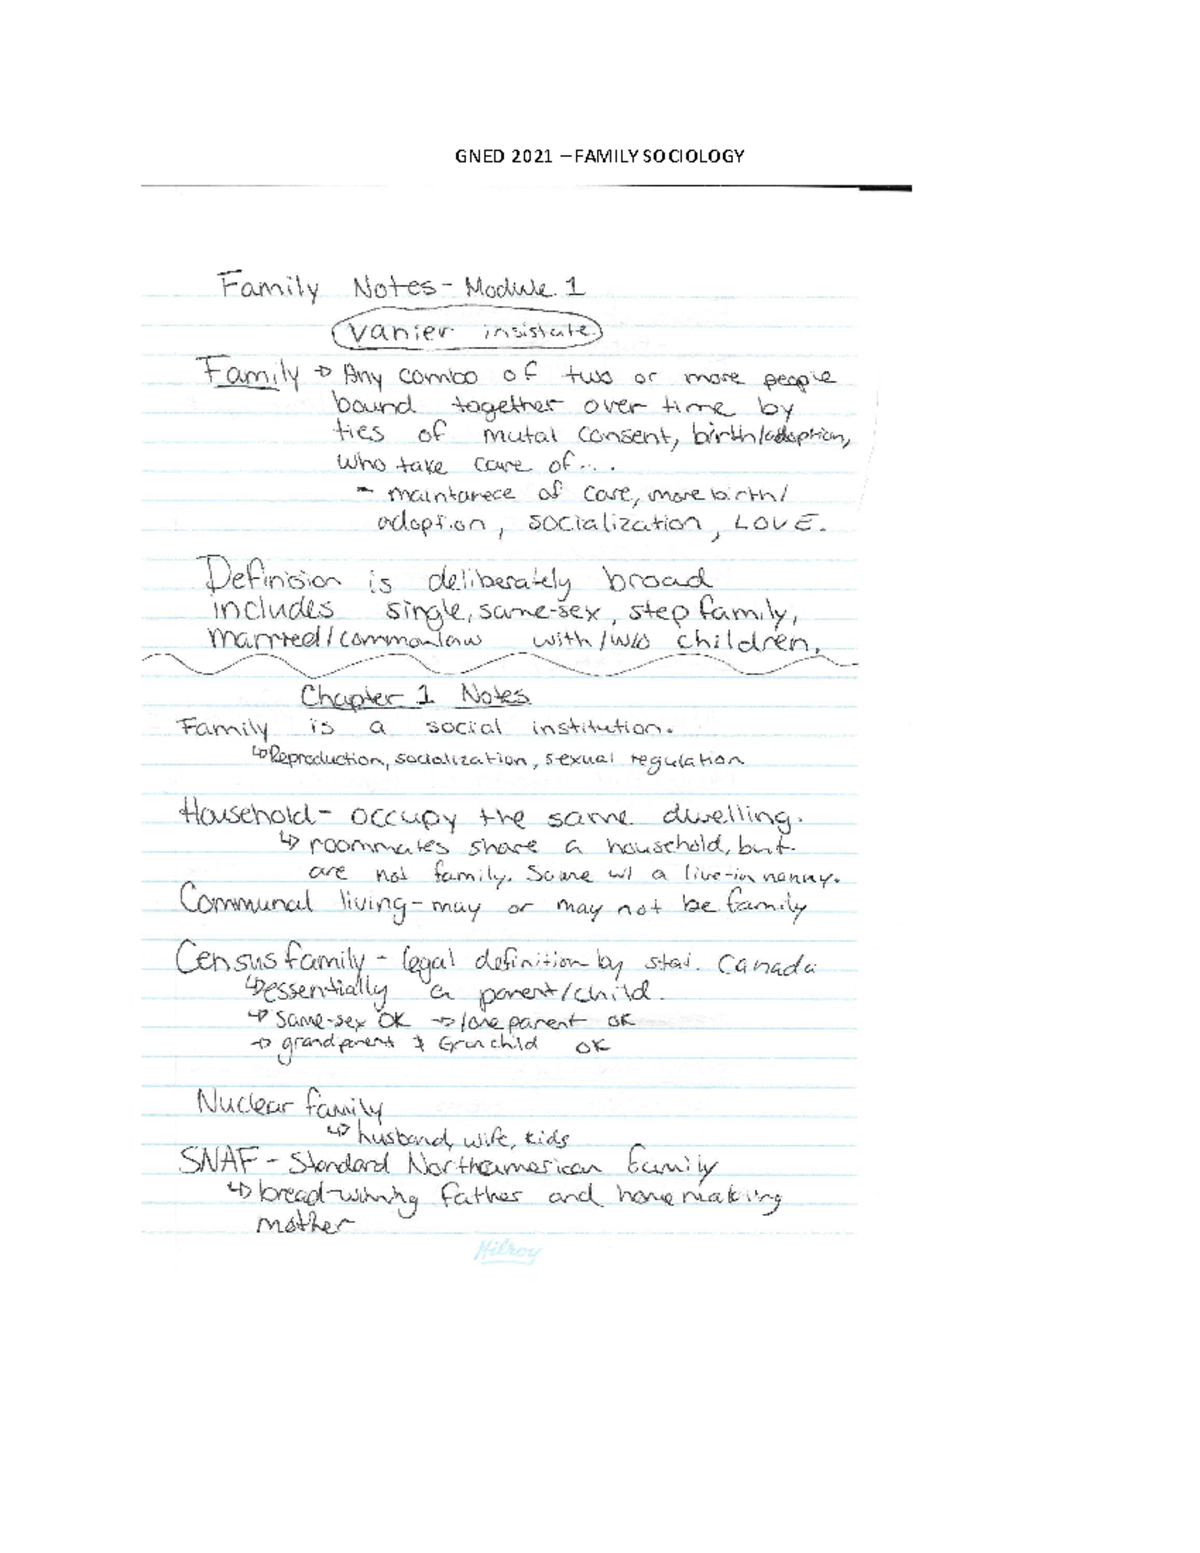 GNED 2021 – FAMILY SOCIOLOGY
Family Notes - Module 1
Vanier insistute
Family → Any combo of two or more people
bound together over time by
ties of mutal consent, birth/adoption,
who take care of....
- maintanece of care, more birth/
adoption, socialization, LOVE.
Definision is deliberately broad
includes single, same-sex, step family,
married/commonlaw with/w/o children.
Chapter 1 Notes
Family is a social institution.
↳ Reproduction, socialization, sexual regulation
Household - occupy the same dwelling.
↳ roommates share a household, but
are not family. Same w/ a live-in nanny.
Communal living - may or may not be family
Census family - legal definition by stat. Canada
↳ essentially a parent/child.
↳ same-sex OK → lone parent OK
→ grandparent & Granchild OK
Nuclear family
↳ husband, wife, kids
SNAF - Standard North american family
↳ bread-winning father and homemaking
mother
Hilroy